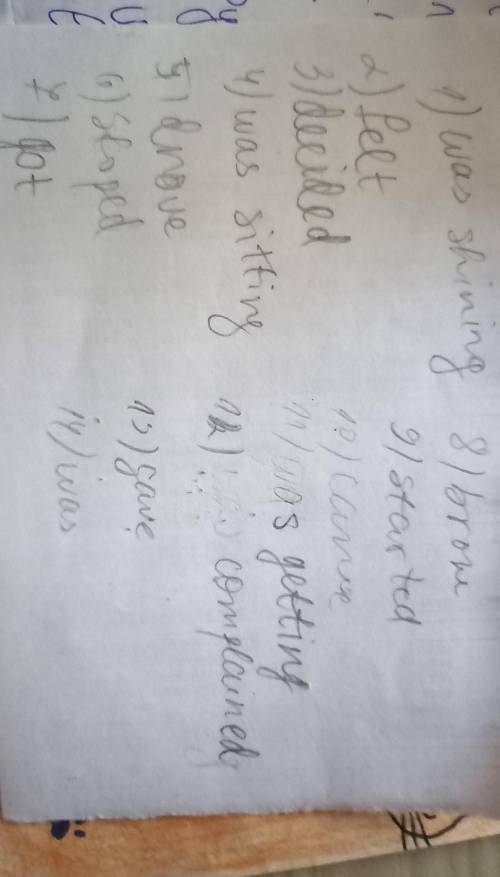 1) was shining
2) felt
3) decided
4) was sitting
5) drove
6) stoped
7) got
8) brow
9) started
10) came
11) was getting
12) complained
13) gave
14) was